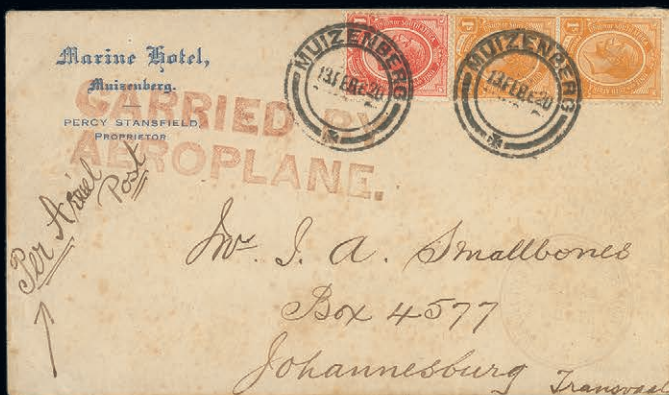 Marine Hotel,
Muizenberg.
PERCY STANSFIELD,
PROPRIETOR
CARRIED BY
AEROPLANE.
MUIZENBERG
13 FEB 20
MUIZENBERG
13 FEB 20
Per Aërial
Post
Mr. I. A. Smallbones
Box 4577
Johannesburg
Transvaal